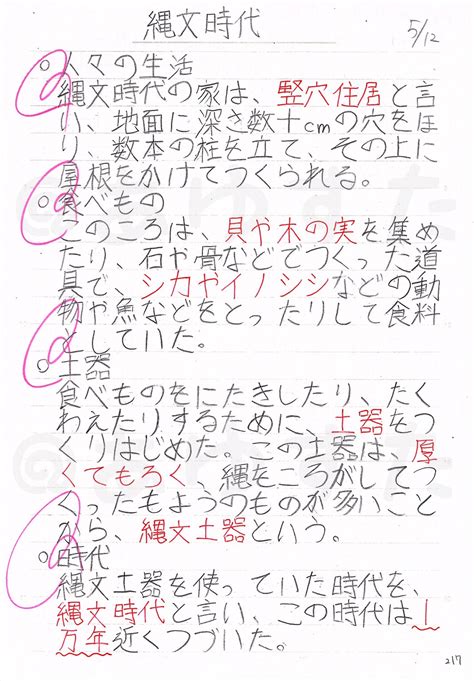 縄文時代
5/12
○人々の生活
縄文時代の家は、竪穴住居と言
い、地面に深さ数十cmの穴をほ
り、数本の柱を立て、その上に
屋根をかけてつくられる。
○食べもの
このころは、貝や木の実を集め
たり、石や骨などでつくった道
具で、シカやイノシシなどの動
物や魚などをとったりして食料
としていた。
○土器
食べものをにたきしたり、たく
わえたりするために、土器をつ
くりはじめた。この土器は、厚
くてもろく、縄をころがしてつ
くったもようのものが多いこと
から、縄文土器という。
○時代
縄文土器を使っていた時代を、
縄文時代と言い、この時代は1
万年近くつづいた。
217